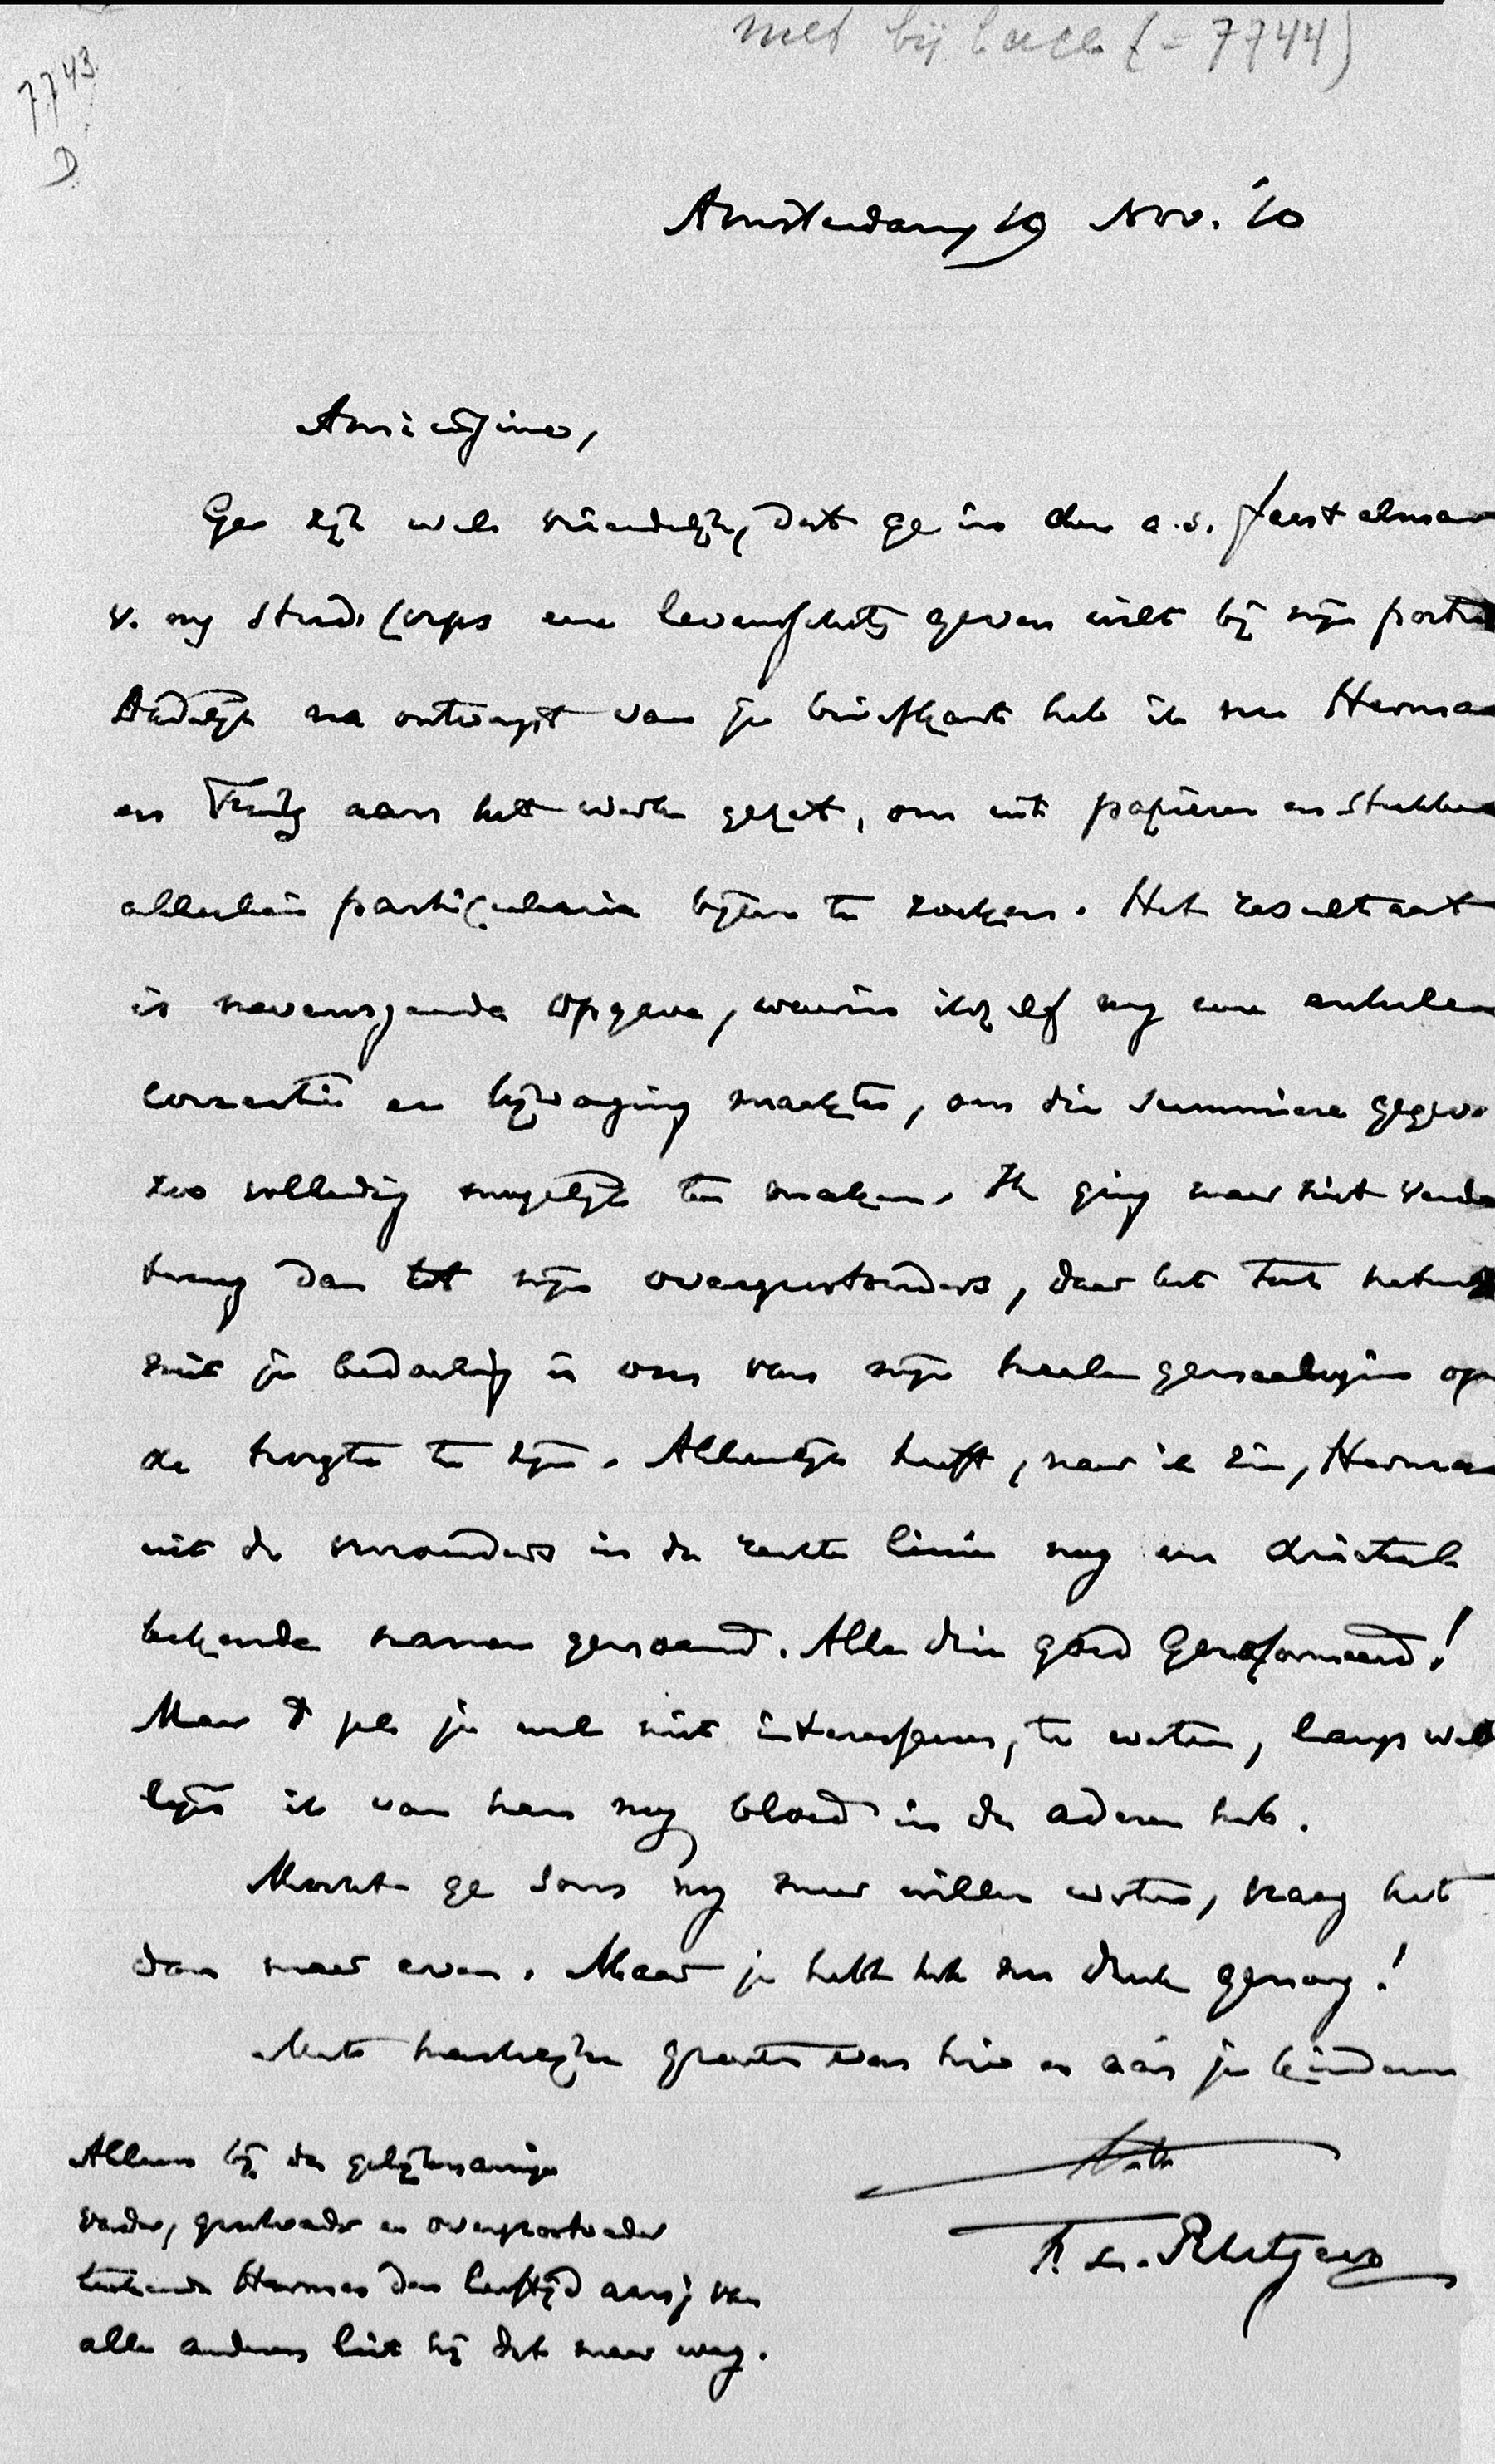 met bijlage (= 7744)
7743.
D.
Amsterdam, 19 Nov. '10
Amicissime,
Ge zijt wel vriendelijk, dat ge in den a.s. feestalmanak
v. ons Stud. Corps eene levensschets geven wilt bij mijn portret
Dadelijk na ontvangst van je briefkaart heb ik nu Herman
en Frits aan het werk gezet, om uit papieren en stukken
allerlei particularia bijeen te zoeken. Het resultaat
is nevensgaande opgave, waarin ikzelf nog eene enkele
correctie en bijvoeging maakte, om die summiere gegevens
zoo volledig mogelijk te maken. Ik ging maar niet verder
terug dan tot mijn overgrootouders, daar het toch
niet je bedoeling is om van mijn heele genealogie op
de hoogte te zijn. Alleenlijk heeft, naar ik zie, Herman
uit de voorouders in de rechte linie nog een drietal
bekende namen genoemd. Alle drie goed Gereformeerd!
Maar 't zal je wel niet interesseeren, te weten, langs welke
lijn ik van hen nog bloed in de aderen heb.
Mocht ge soms nog meer willen weten, vraag het
dan maar even. Maar je hebt het nu druk genoeg!
Met hartelijke groeten van hier en aan je kinderen
tt
F. L. Rutgers
Alleen bij de gelijknamige
vader, grootvader en overgrootvader
teekende Herman den leeftijd aan; van
alle anderen liet hij dat maar weg.